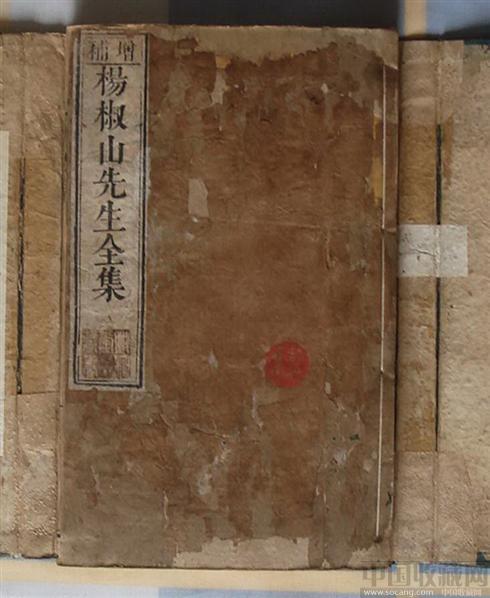 增補
楊椒山先生全集
中国收藏网
www.socang.com 中国收藏网